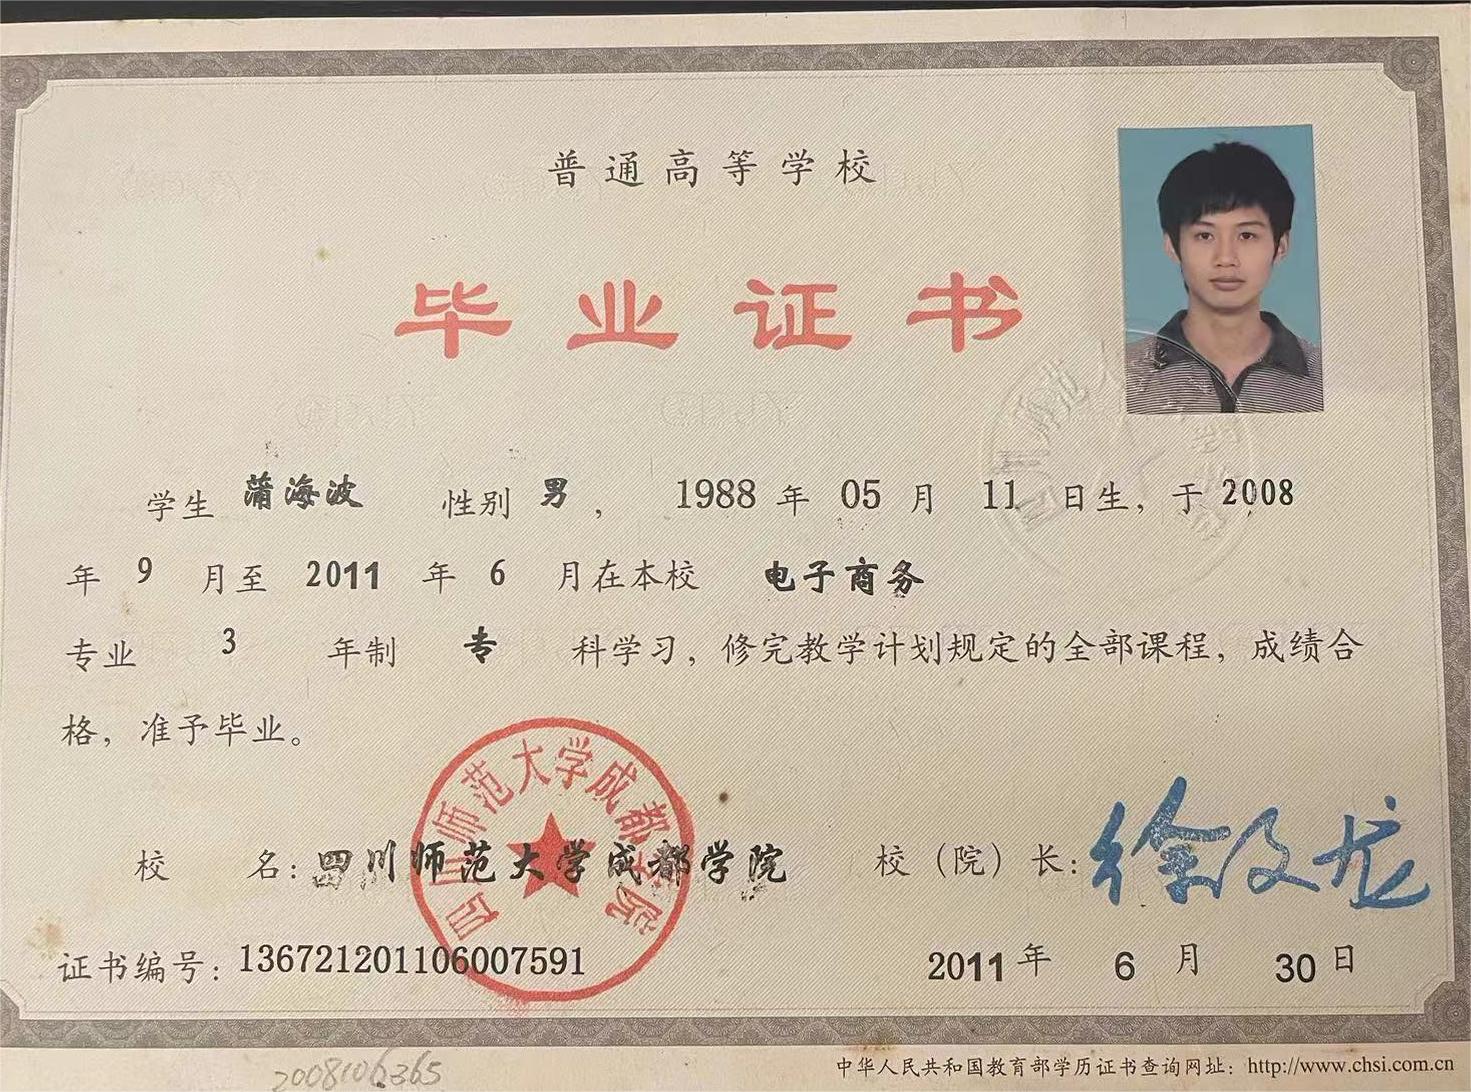 普通高等学校
毕业证书
学生 蒲海波 性别 男 ， 1988 年 05 月 11 日生，于 2008
年 9 月至 2011 年 6 月在本校 电子商务
专业 3 年制 专 科学习，修完教学计划规定的全部课程，成绩合
格，准予毕业。
四川师范大学成都学院
校 名：四川师范大学成都学院 校（院）长：
证书编号：136721201106007591 2011 年 6 月 30 日
2008106365
中华人民共和国教育部学历证书查询网址：http://www.chsi.com.cn